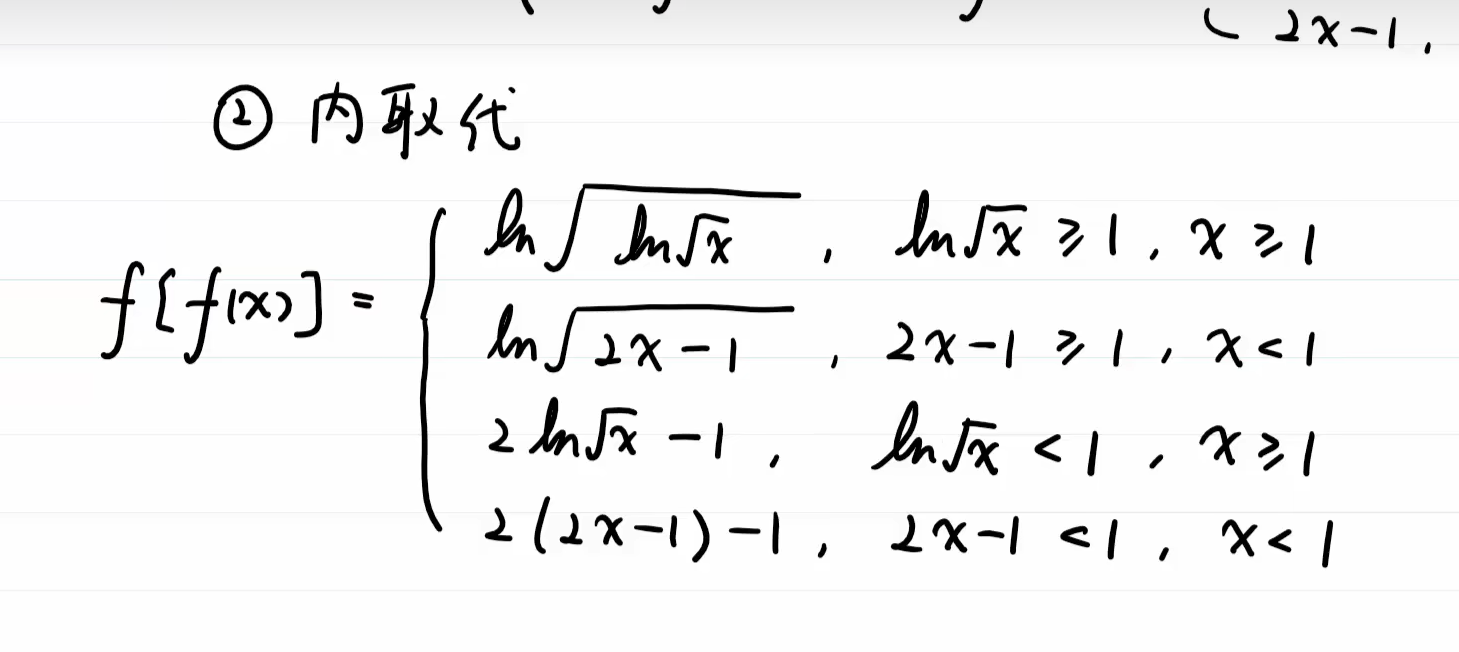 2x-1,
② 内取代
f[f(x)] =
ln√(ln√x), ln√x ≥ 1, x ≥ 1
ln√(2x-1), 2x-1 ≥ 1, x < 1
2ln√x - 1, ln√x < 1, x ≥ 1
2(2x-1)-1, 2x-1 < 1, x < 1